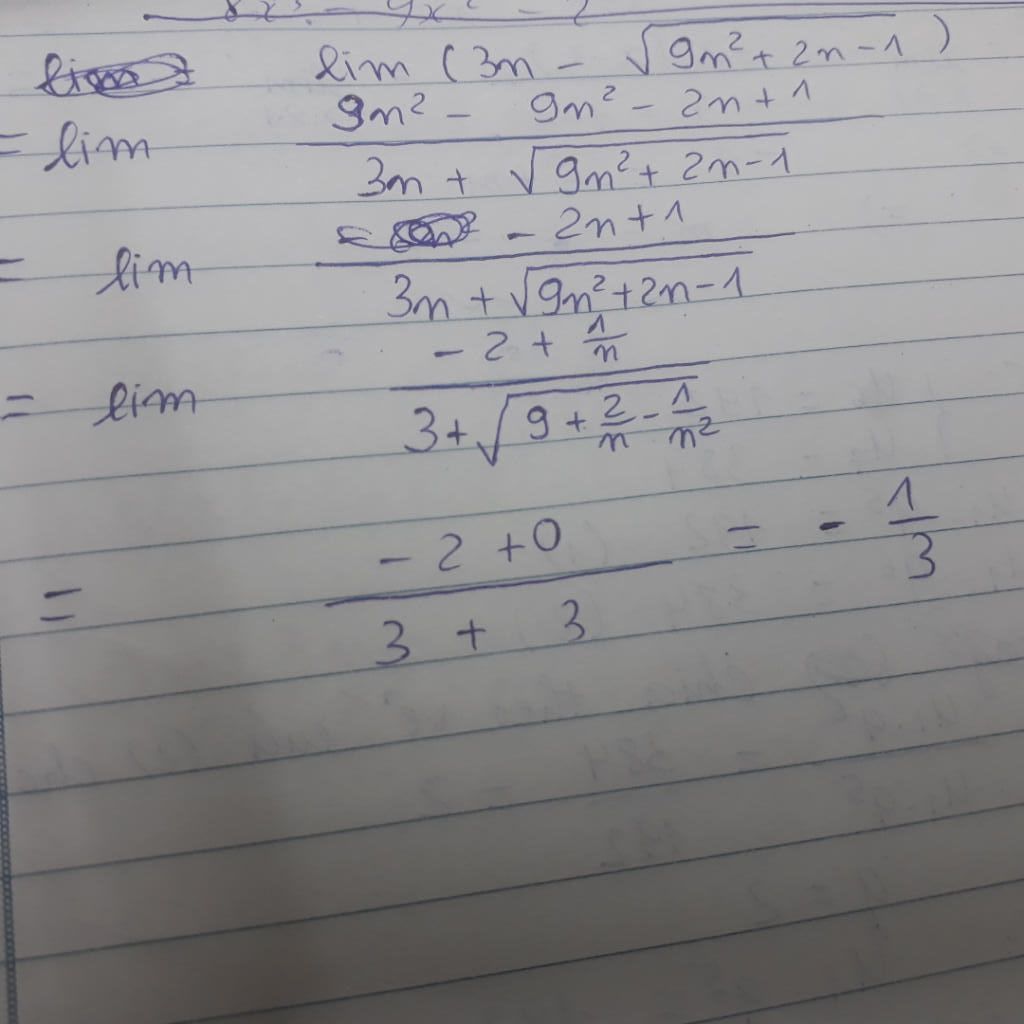 lim (3n - √(9n² + 2n - 1))
= lim (9n² - 9n² - 2n + 1)/(3n + √(9n² + 2n - 1))
= lim (- 2n + 1)/(3n + √(9n² + 2n - 1))
= lim (- 2 + 1/n)/(3 + √(9 + 2/n - 1/n²))
= (- 2 + 0)/(3 + 3) = - 1/3